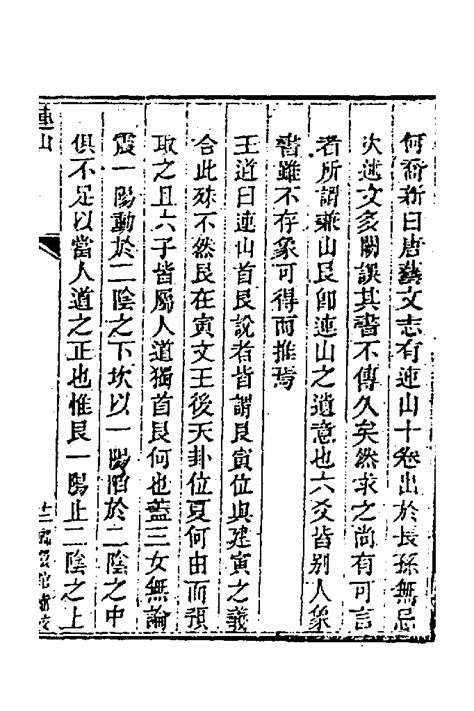 何喬新曰唐藝文志有連山十卷出於長孫無忌
次述文多闕誤其書不傳久矣然求之尚有可言
者所謂兼山艮卽連山之遺意也六爻皆别人象
書雖不存象可得而推焉
王道曰連山首艮說者皆謂艮寅位與建寅之義
合此殊不然艮在寅文王後天卦位夏何由而預
取之且六子皆屬人道獨首艮何也蓋三女無論
震一陽動於二陰之下坎以一陽陷於二陰之中
俱不足以當人道之正也惟艮一陽止二陰之上
連山